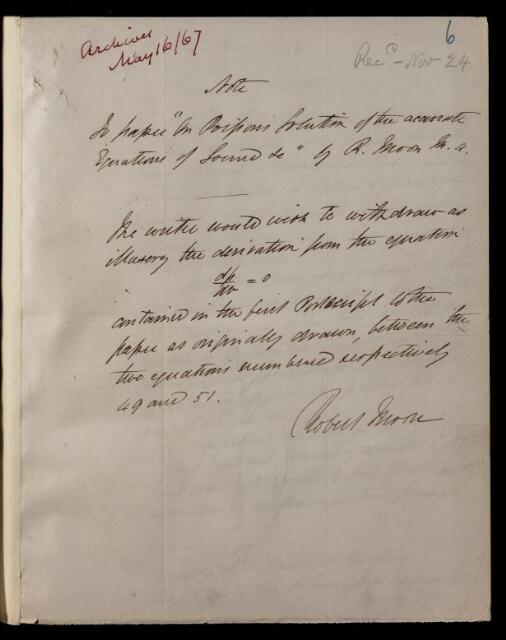 Archives
May 16/67
6
Recd - Nov 24
Note
To paper "On Poisson's Solution of the accurate
Equations of Sound &c" by R. Moon M.A.
The writer would wish to withdraw as
illusory the derivation from the equation
dp/dv = 0
contained in the first Postscript to the
paper as originally drawn, between the
two equations numbered respectively
49 and 51.
Robert Moon